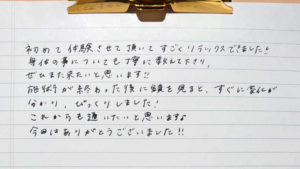 初めて体験させて頂いてすごくリラックスできました!
身体の事についても丁寧に教えて下さり、
ぜひまた来たいと思います!!
施術が終わった後に鏡を見ると、すぐに変化が
分かり、びっくりしました!
これからも通いたいと思います♪
今日はありがとうございました!!